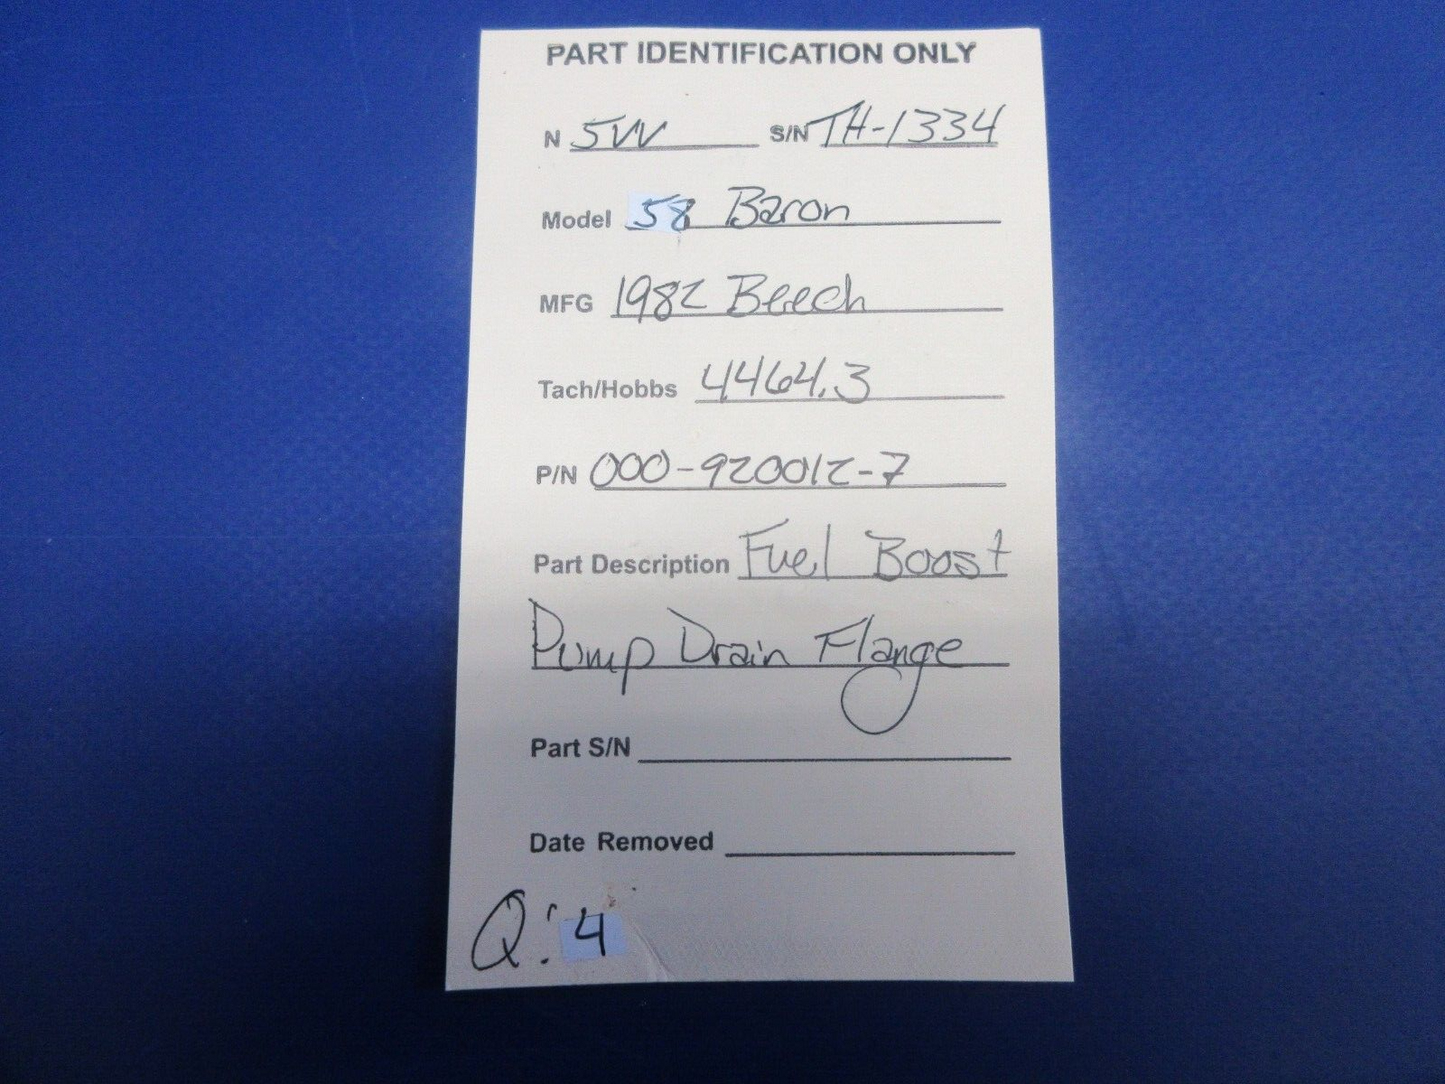 PART IDENTIFICATION ONLY
N 5VV S/N TH-1334
Model 58 Baron
MFG 1982 Beech
Tach/Hobbs 4464.3
P/N 000-920012-7
Part Description Fuel Boost
Pump Drain Flange
Part S/N
Date Removed
Q: 4